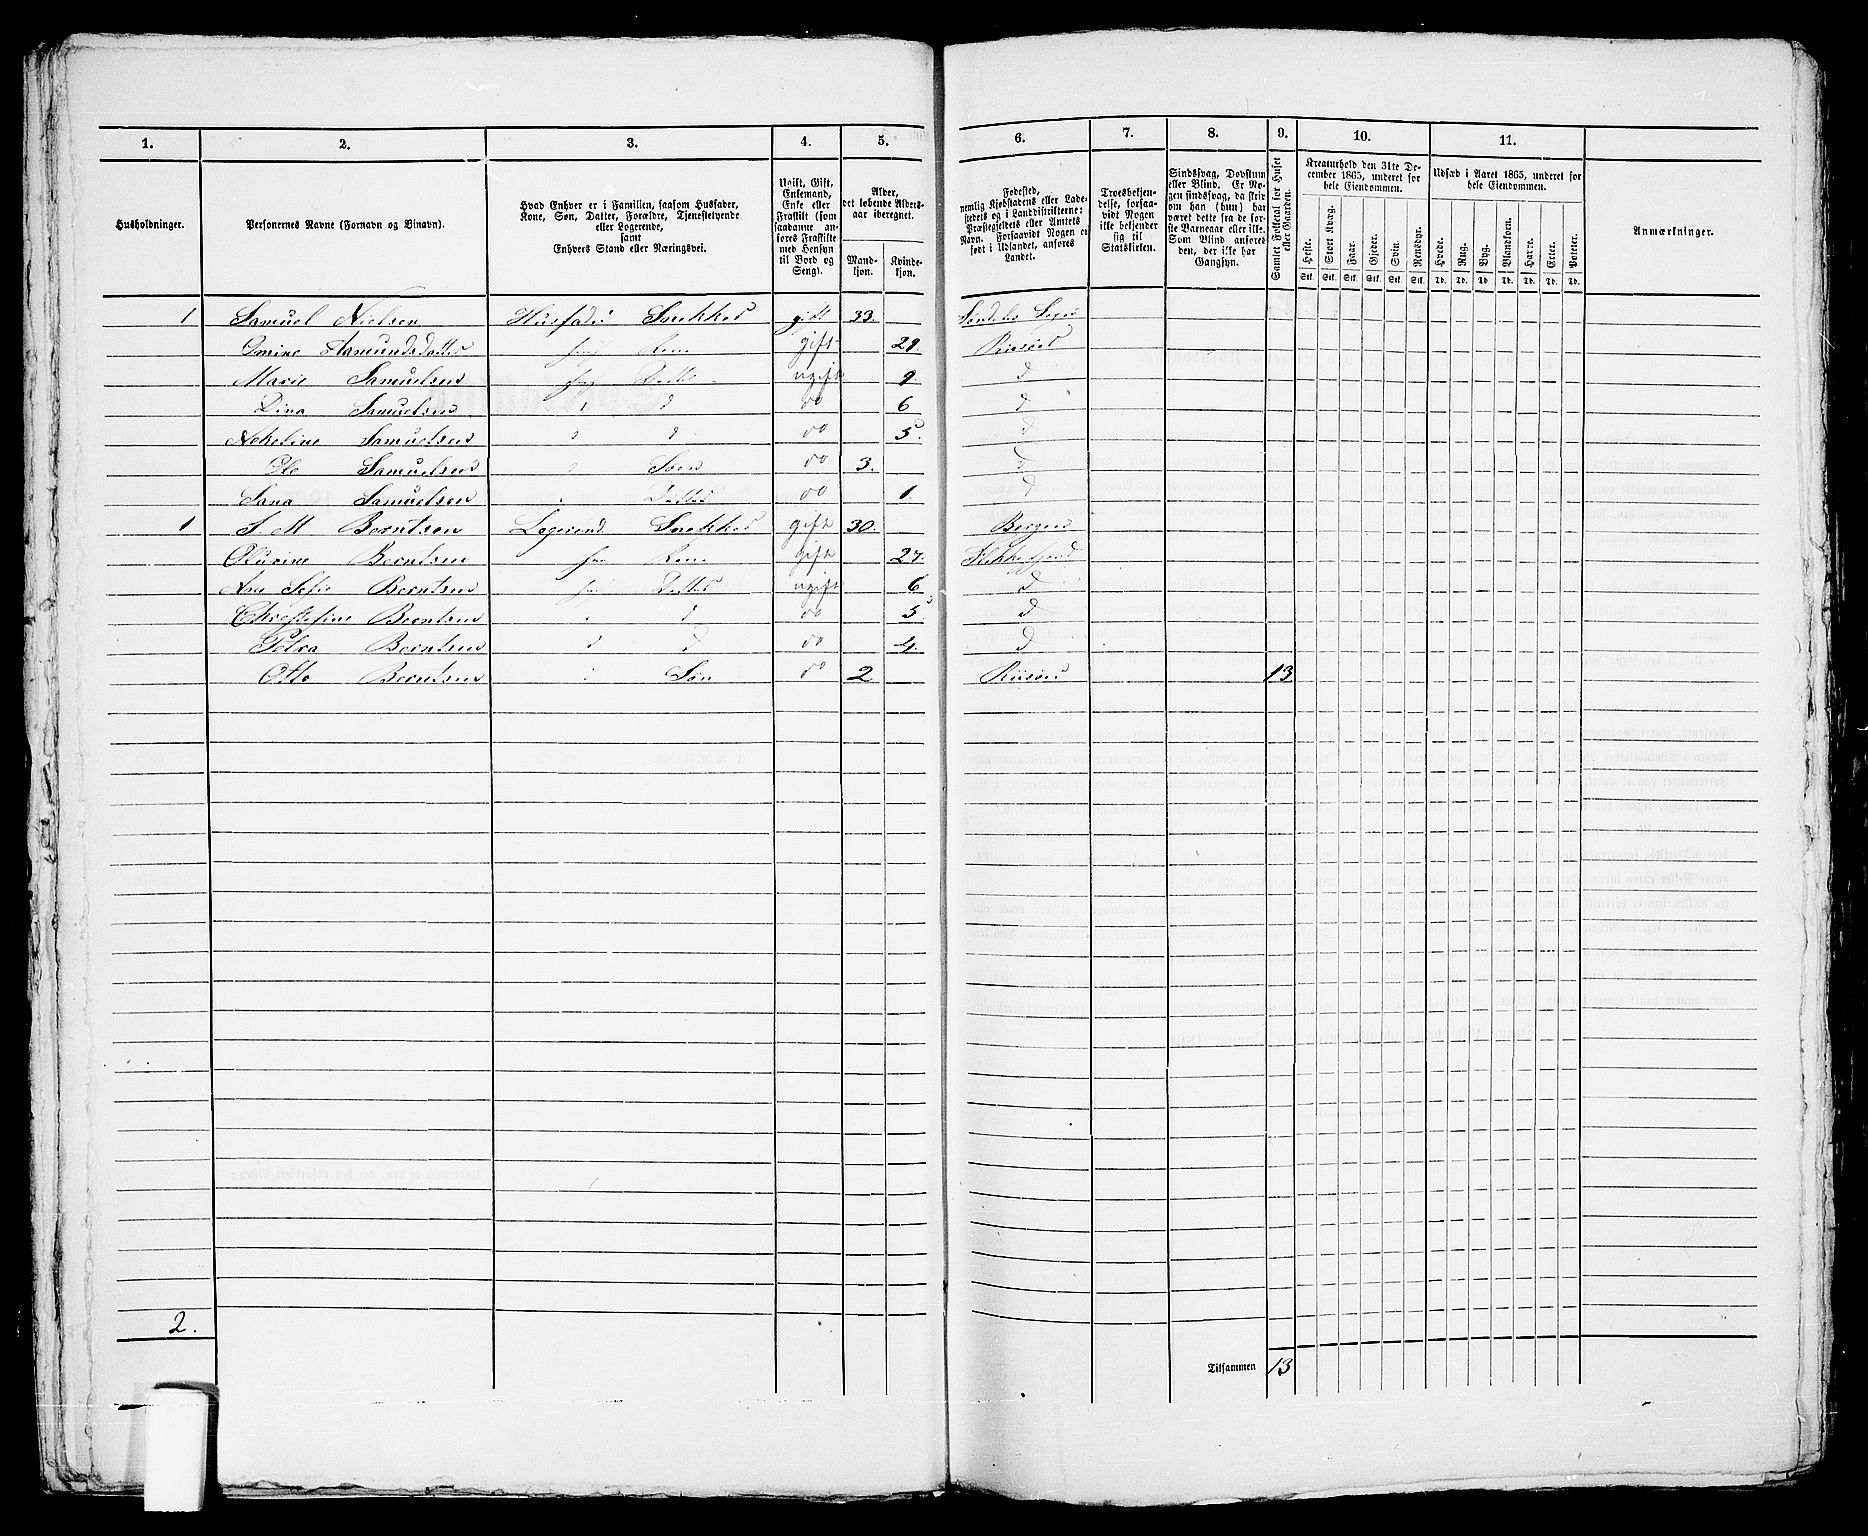 1. 2. 3. 4. 5. 6. 7. 8. 9. 10. 11.
Husholdninger.
Personernes Navne (Fornavn og Tilnavn).
Hvad Enhver er i Familien, saasom Husfader,
Kone, Søn, Datter, Forældre, Tjenestetyende
eller Logerende,
samt
Enhvers Stand eller Næringsvei.
Ugift, Gift,
Enkemand,
Enke eller
Fraskilt (som
saadanne an-
føres Fraskilte
med Hensyn
til Bord og
Seng).
Alder,
det løbende Alders-
aar iberegnet.
Mand-
kjøn.
Kvinde-
kjøn.
Fødested,
nemlig Kjøbstadens eller Lade-
stedets og i Landdistrikterne:
Præstegjeldets eller Amtets
Navn. Forsaavidt Nogen er
født i Udlandet, anføres
Landet.
Troesbekjen-
delse, forsaa-
vidt Nogen
ikke bekjender
sig til
Statskirken.
Sindssvag, Døvstum
eller Blind. Er No-
gen sindssvag, da skri-
ves om han (hun) har
været dette fra de før-
ste Barneaar eller ikke.
Som Blind anføres
den, der ikke har
Gangsyn.
Samlet Folketal for Huset
eller Gaarden.
Kreaturhold den 31te De-
cember 1865, underet for
hele Eiendommen.
Heste. Stort Kvæg. Faar. Gjeder. Svin. Rensdyr.
Stk. Stk. Stk. Stk. Stk. Stk.
Udsæd i Aaret 1865, underet for
hele Eiendommen.
Hvede. Rug. Byg. Blandkorn. Havre. Erter. Poteter.
Td. Td. Td. Td. Td. Td. Td.
Anmærkninger.
1 Samuel Nielsen Husfader Snekker gift 33.
Omine Aamundsdatter Kone gift 29 Riisøer
Marie Samuelsen Datter ugift 9. d
Dina Samuelsen d do 6 d
Samuelsen d do 5. d
Ole Samuelsen Søn do 3. d
Samuelsen Datter do 1. d
1 Berntsen Logerend Snekker gift 30. Bergen
Berntsen Kone gift 27. Flekkefjord
Berntsen Datter ugift 6 d
Berntsen d do 5 d
Berntsen d d do 4. d
Otto Berntsen Søn do 2 Riisøer 13
2.
Tilsammen 13